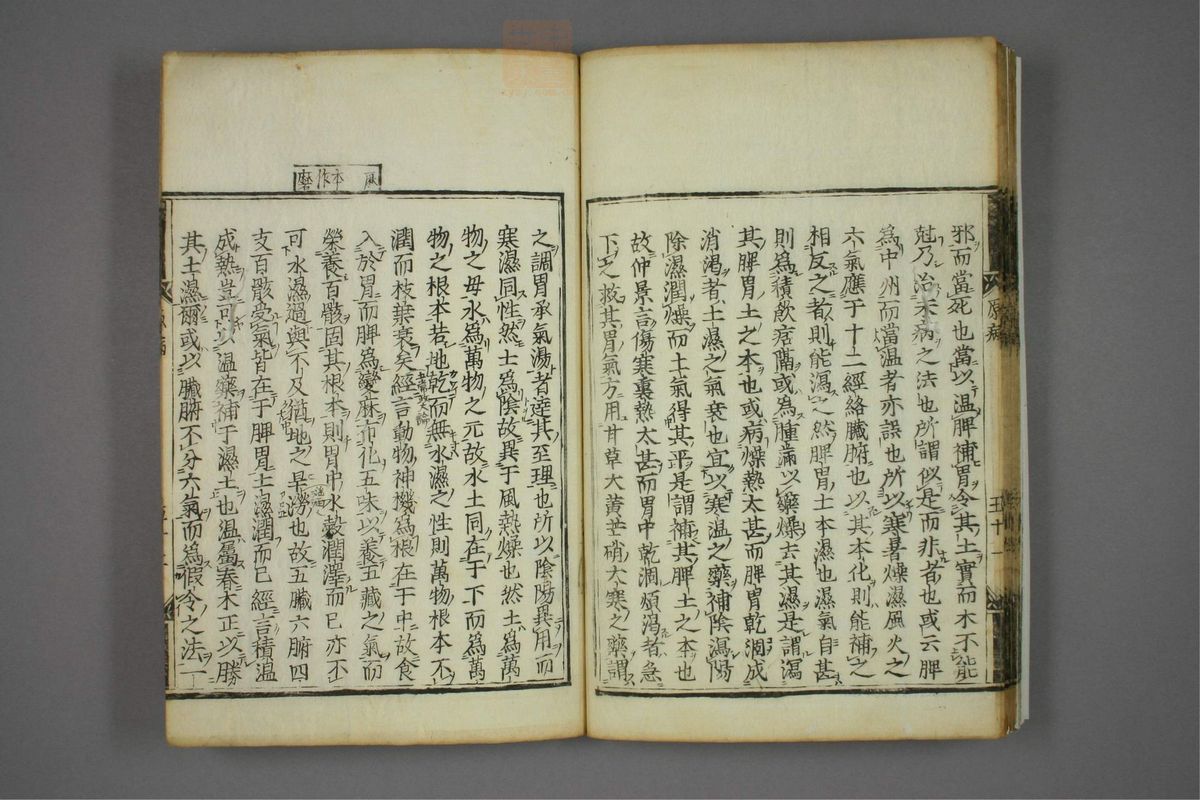 邪而當死也當以温脾補胃令其土實而木不能
尅乃治未病之法也所謂似是而非者也或云脾
爲中州而當温者亦誤也所以寒暑燥濕風火之
六氣應于十二經絡臟腑也以其本化則能補之
相反之者則能瀉之然脾胃土本濕也濕氣自甚
則爲積飲痞隔或爲腫滿以藥燥去其濕是謂瀉
其脾胃土之本也或病燥熱太甚而脾胃乾涸成
消渴者土濕之氣衰也宜以寒温之藥補陰瀉陽
除濕潤燥而土氣得其平是謂補其脾土之本也
故仲景言傷寒裏熱太甚而胃中乾涸煩渴者急
下之救其胃氣方用甘草大黄芒硝大寒之藥謂
之調胃承氣湯者達其至理也所以陰陽異用而
寒濕同性然土爲陰故異于風熱燥也然土爲萬
物之母水爲萬物之元故水土同在于下而爲萬
物之根本若地乾而無水濕之性則萬物根本不
潤而枝葉衰矣經言動物神機爲根在于中故食
入於胃而脾爲變麻布化五味以養五藏之氣而
榮養百骸固其根本則胃中水穀潤澤而已亦不
可水濕過與不及猶地之旱澇也故五臟六腑四
支百骸受氣皆在于脾胃土濕潤而已經言積温
成熱豈可以温藥補于濕土也温屬春木正以勝
其土濕爾或以臟腑不分六氣而爲假令之法一
麻一本作磨
原病
五十一